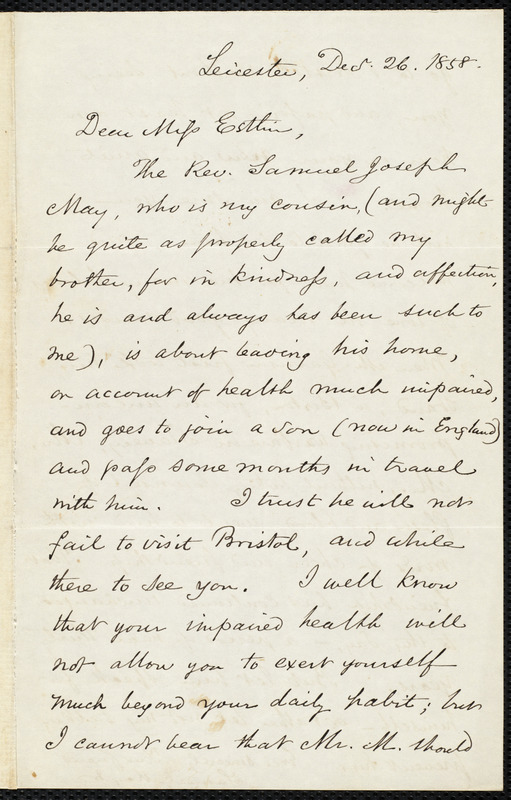 Leicester, Dec. 26. 1858.
Dear Miss Estlin,
The Rev. Samuel Joseph
May, who is my cousin, (and might
be quite as properly called my
brother, for in kindness, and affection,
he is and always has been such to
me), is about leaving his home,
on account of health much impaired,
and goes to join a son (now in England)
and pass some months in travel
with him. I trust he will not
fail to visit Bristol, and while
there to see you. I well know
that your impaired health will
not allow you to exert yourself
much beyond your daily habit; but
I cannot bear that Mr. M. should